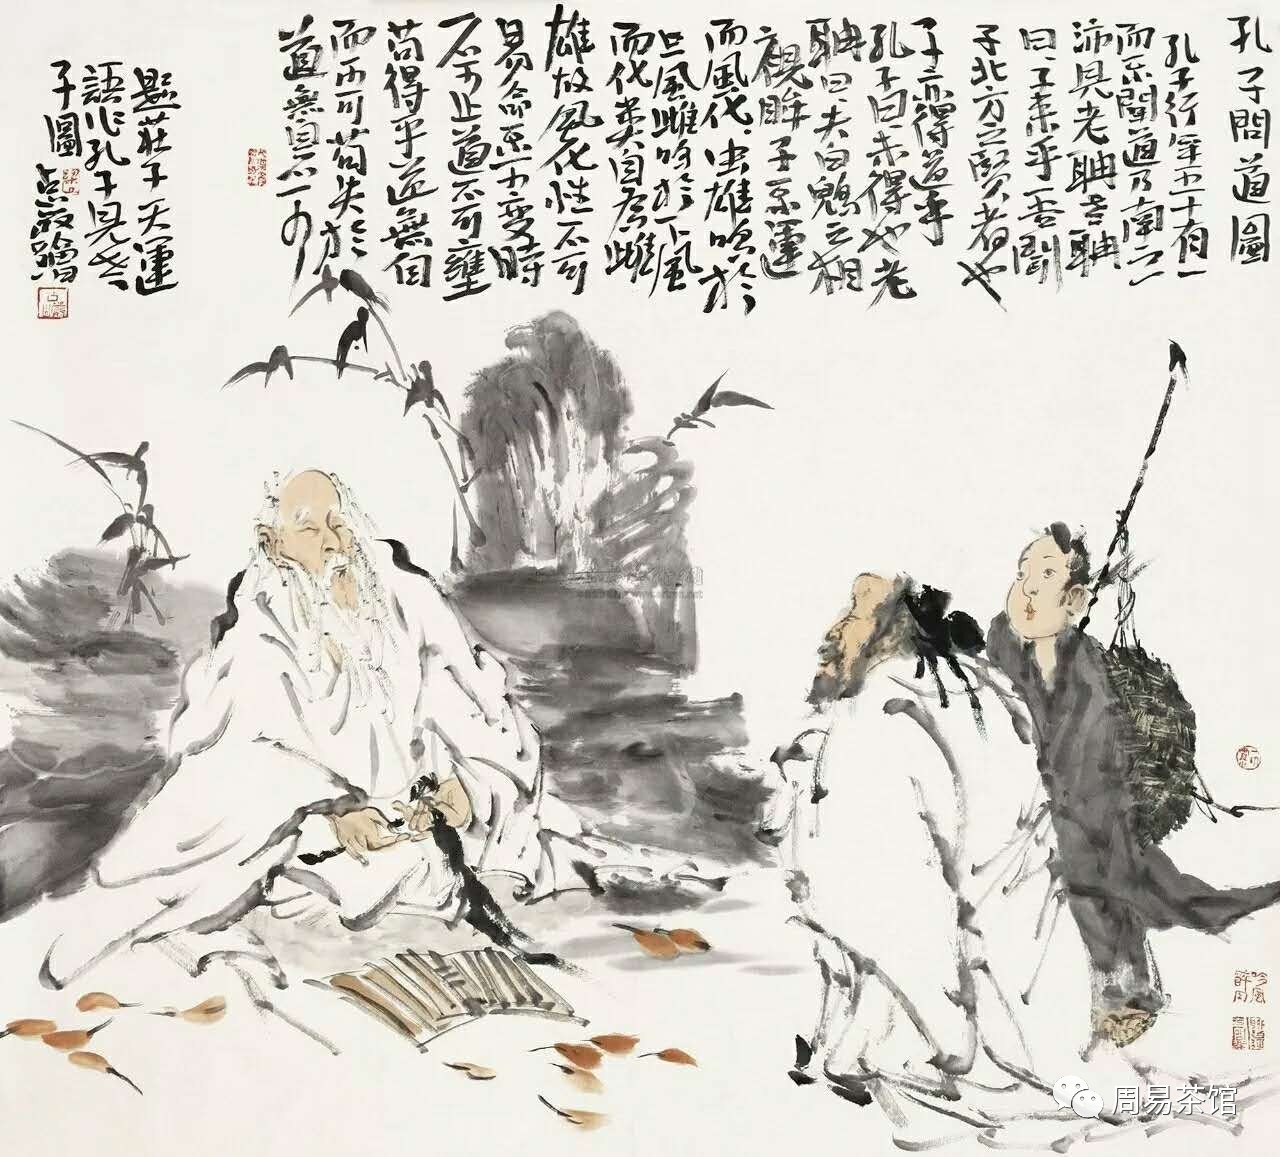 孔子問道圖
孔子行年五十有一
而不聞道乃南之
沛見老聃老聃
曰子來乎吾聞
子北方之賢者也
子亦得道乎
孔子曰未得也老
聃曰夫白鶂之相
視眸子不運
而風化虫雄鳴於
上風雌鳴於下風
而化類自為雌
雄故風化性不可
易命不可變時
不可止道不可壅
苟得乎道無自
而不可苟失於
道無自而可
題莊子天運
語作孔子見老
子圖
周易茶馆